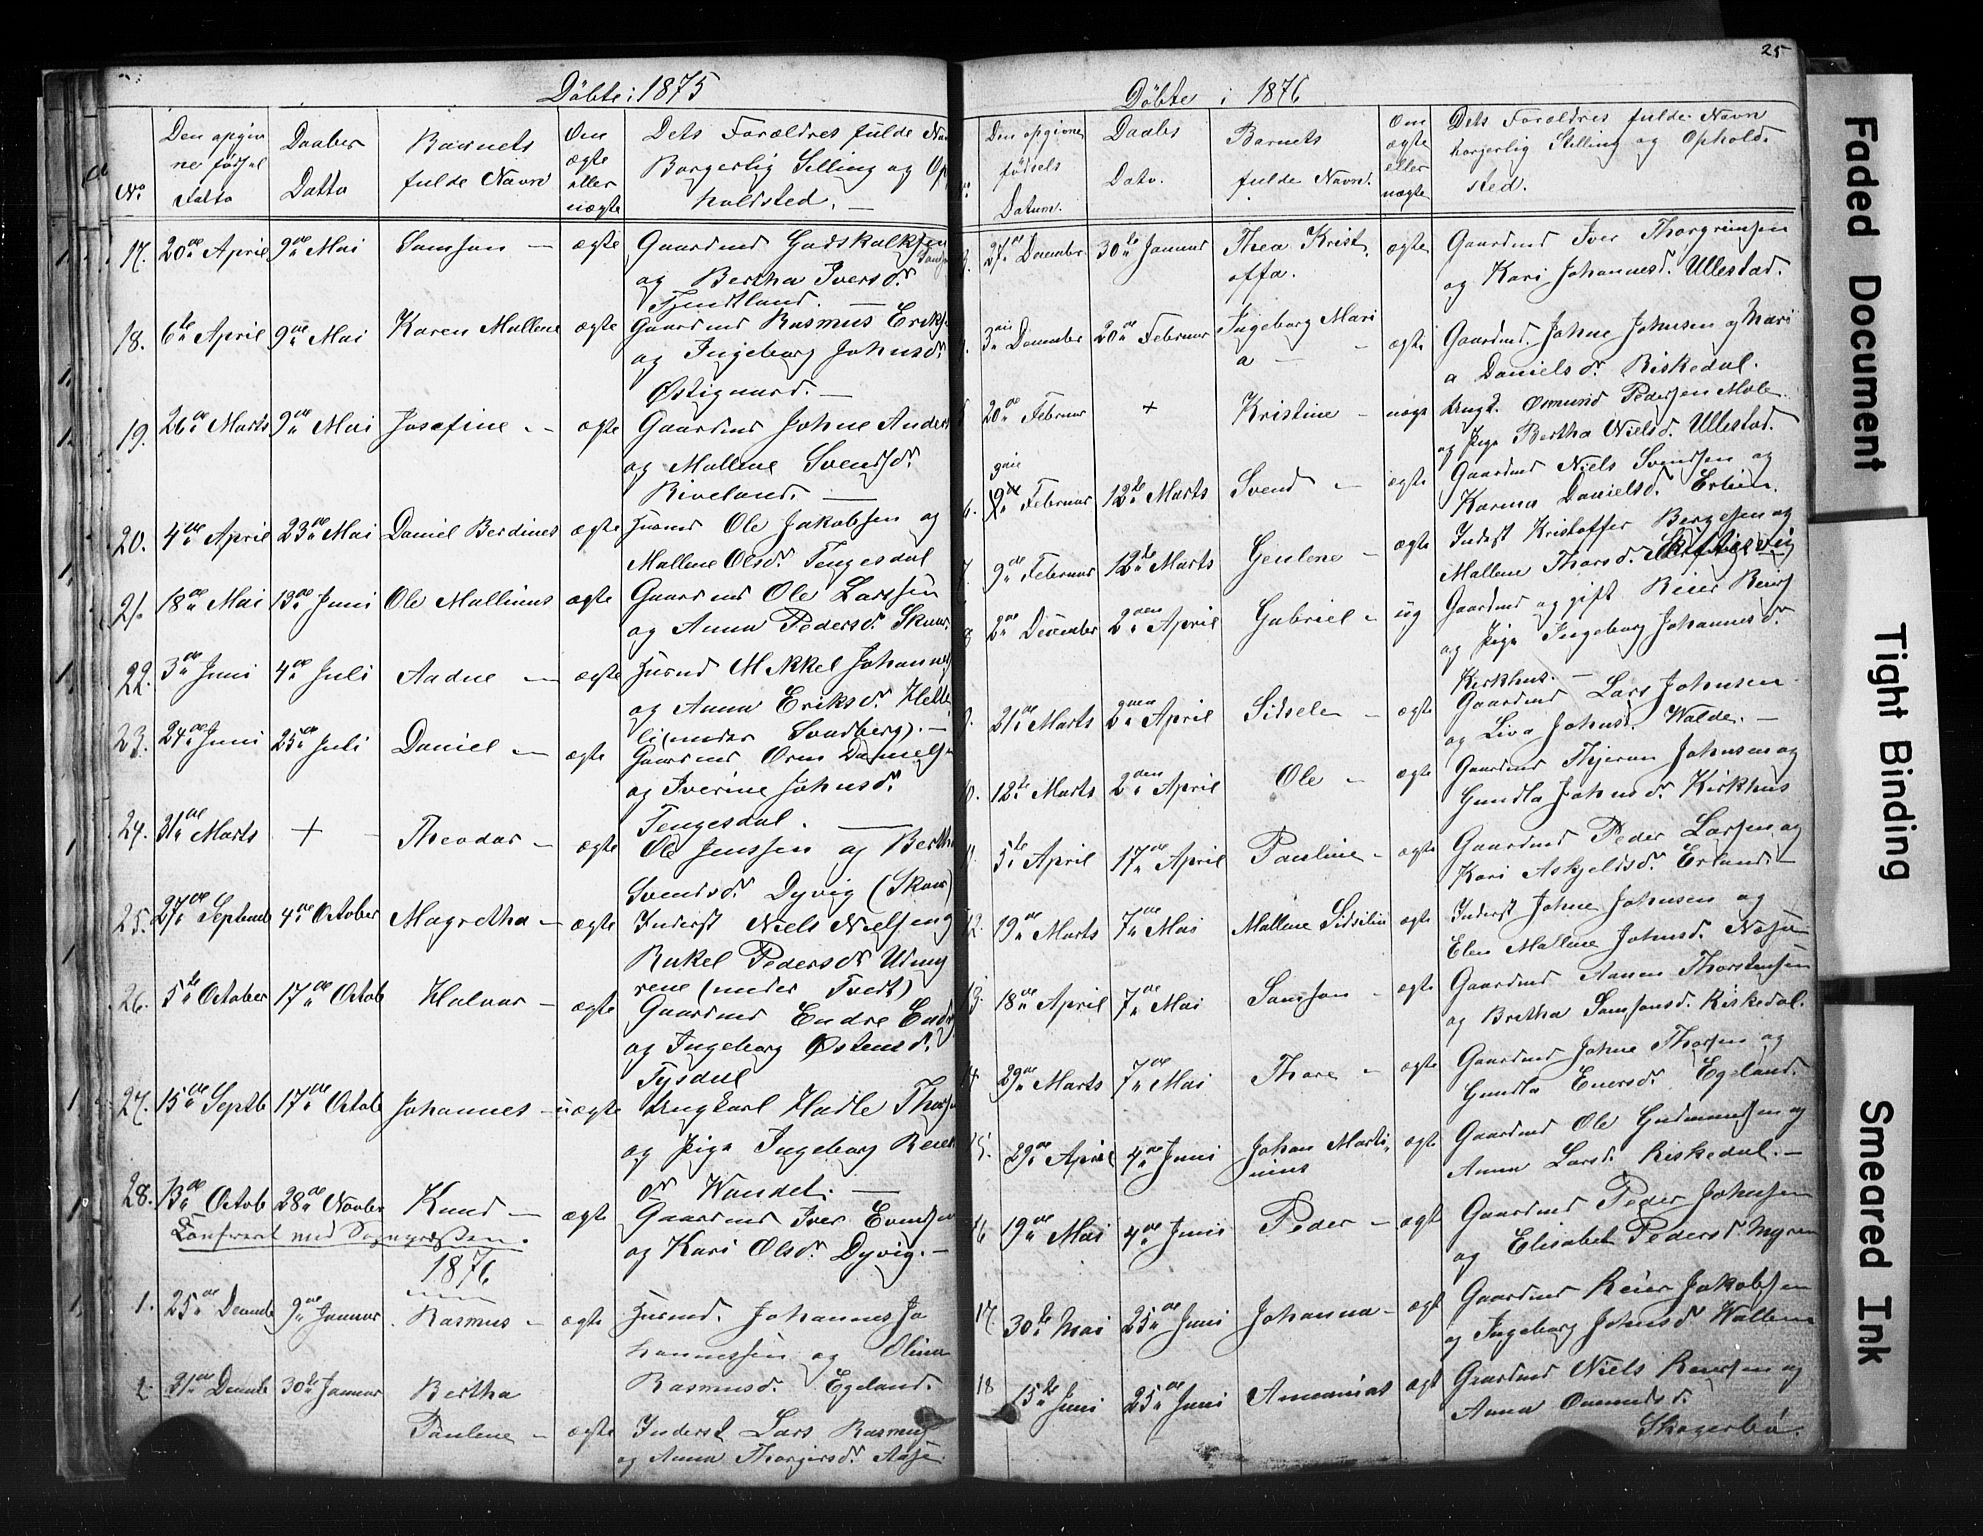 Döbte i 1875
No
Den opgiv
ne fødsel
Datto
Daabes
Datto
Barnets
fulde Navn
Om
ægte
eller
uægte
Dets Forældres fulde Nav
Borgerlig Stilling og Op
holdsted. —
17. 20de April 9de Mai Samson — ægte Gaardmd Godskalk
og Bertha Iversdr
Tjendtland. —
18. 6te April 9de Mai Karen Mallene ægte Gaardmd Rasmus Eriks
og Ingeborg Johnsdr
Østigaard. —
19. 26de Marts 9de Mai Josefine — ægte Gaardmd Johne Anders
og Mallene Svendsdr
Riveland. —
20. 4de April 23de Mai Daniel Berdines ægte Husmd Ole Jakobsen og
Mallene Olsdr Tengesdal
21. 18de Mai 13de Juni Ole Mallinus ægte Gaardmd Ole Larssen
og Anna Pedersdr Skaar
22. 3de Juni 4de Juli Aadne — ægte Husmd Mikkel Johannes
og Anna Eriksdr Helle
li (under Sandberg). —
23. 24de Juni 25de Juli Daniel — ægte Gaardmd Orm Danielse
og Iverine Johnsdr
Tengesdal. —
24. 31de Marts + Theodor — ægte Ole Jenssen og Bertha
Svendsdr Dyvig (Skaar)
25. 27de Septemb 4de October Magretha — ægte Inderst Niels Nielsen og
Rakel Pedersdr Udmy
rene (under Tvedt)
26. 5te October 17de Octob Halvor — ægte Gaardmd Endre Endr
og Ingeborg Østensdr
Tysdal
27. 15de Septb 17de Octob Johannes — uægte Ungkarl Hadle Thors
og Pige Ingeborg Reier
dr Wandet. —
28. 13de Octob 28de Novbr Knud — ægte Gaardmd Iver Evendsen
og Kari Olsdr Dyvig. —
Confereret med Sognepræsten.
1876
1. 25de Decemb 9de Januar Rasmus — ægte Husmd. Johannes Jo
hannessen og Olina
Rasmusd. Egeland.
2. 31de Decemb 30te Januar Bertha
Pauline — ægte Inderst Lars Rasmus
og Anna Thorgersdr Aase
25
Döbte i 1876
Den opgivne
fødsels
Datum.
Daabs
Dato.
Barnets
fulde Navn.
Om
ægte
eller
uægte
Dets Forældres fulde Navn
borgerlig Stilling og Ophold.
sted.
27de December 30te Januar Thea Krist
offa. ægte Gaardmd Iver Thorgrimsen
og Kari Johannesd. Ullestad.
3die December 20de Februar Ingeborg Mari
a — ægte Gaardmd. Johne Johnsen og Mari
a Danielsdr Riskedal.
20de Februar + Kristine — uægte Ungk. Omund Pedersen Moe
og Pige Bertha Nielsd. Ullestad.
6. 9de Februar 12te Marts Svend — ægte Gaardmd Niels Svendsen og
Karina Danielsd. Erlien.
7. 9de Februar 12te Marts Geulene — ægte Inderst Kristoffer Bergesen og
Mallene Thorsd.
8. 2den December 2den April Gabriel — ug Gaardmd og gift Reier Reiers
og Pige Ingeborg Johannesdr
Kirkhus. —
9. 21de Marts 2den April Sidsele — ægte Gaardmd Lars Johnsen
og Liva Johnsd. Walde. —
10. 12te Marts 2den April Ole — ægte Gaardmd Thjeran Johnsen og
Gundla Johnsdr. Kirkhus
11. 5te April 17de April Pauline — ægte Gaardmd Peder Larssen og
Kari Askjeldsdr. Erland. —
12. 19de Marts 7de Mai Mallene Sidselin ægte Inderst Johne Johnsen og
Elen Mallene Johnsd.
13. 18de April 7de Mai Samson — ægte Gaardmd Aanen Thorstensen
og Bretha Samsonsd. Riskedal.
14. 29de Marts 7de Mai Thore — ægte Gaardmd Johne Thorsen og
Gundla Enersd. Egeland.
15. 29de April 4de Juni Johan Marti
nius ægte Gaardmd Ole Gudmundsen og
Anna Larsd. Riskedal. —
16 19de Mai 4de Juni Peder — ægte Gaardmd Peder Johnsen
og Elisabet Pedersd. Myren
17. 30te Mai 25de Juni Johanna — ægt Gaardmd Reier Jakobsen
og Ingeborg Johnsdr Wallem
18 15te Juni 25de Juni Ananias ægt Gaardmd Niels Reiersen og
Anna Omundsd.
Skogerbø.
Faded Document
Tight Binding
Smeared Ink